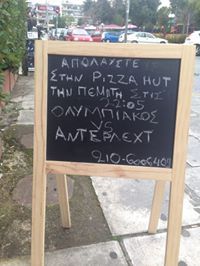 ΑΠΟΛΑΥΣΤΕ
ΣΤΗΝ PIZZA HUT
ΤΗΝ ΠΕΜΠΤΗ ΣΤΙΣ
22:05
ΟΛΥΜΠΙΑΚΟΣ
VS
ΑΝΤΕΡΛΕΧΤ
210-6006409